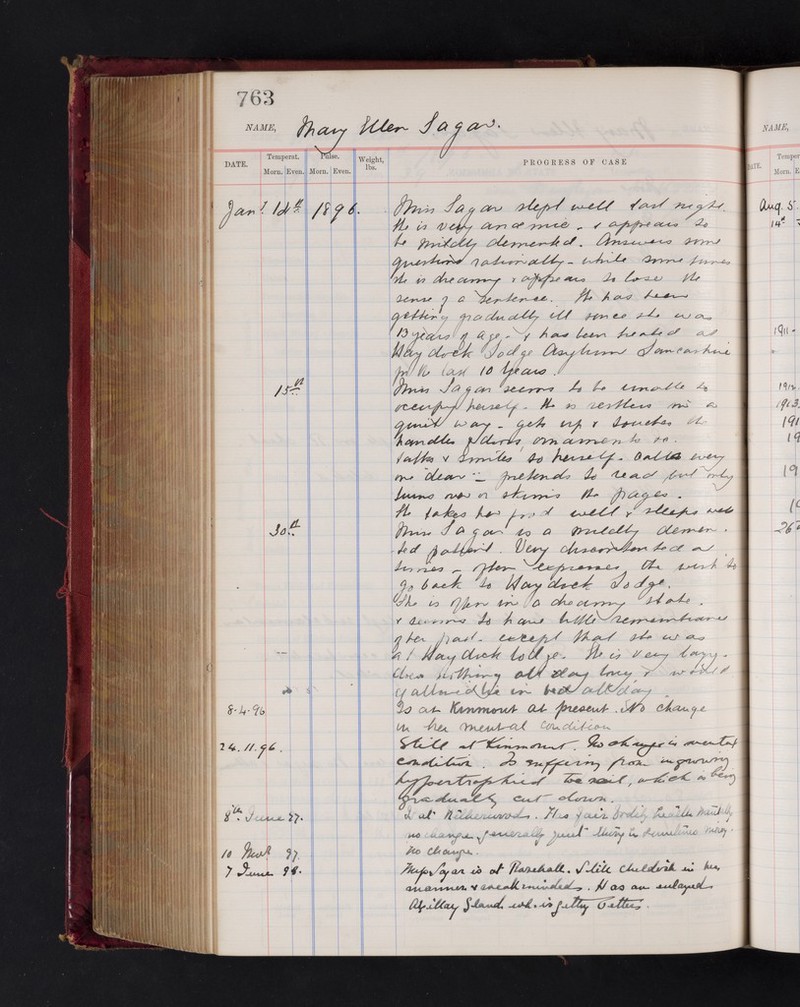 763
NAME, Mary Ellen Sagar.
DATE. Temperat. Pulse. Weight, lbs. PROGRESS OF CASE
Morn. Even. Morn. Even.
Jany. 14th 1896. Miss Sagar slept well last night.
She is very anæmic. & appears to
be mildly demented. Answers some
questions rationally - while some times
she is dreamy & appears to lose the
sense of a sentence. She has been
getting gradually ill since she was
13 years of age. - & has been treated at
Haydock Lodge Asylum Lancashire
for the last 10 years.
15th Miss Sagar seems to be unable to
occupy herself. She is restless in a
quiet way - gets up & touches or
handles ornaments
talks & smiles to herself. Calls every
one "dear" - pretends to read but only
turns over or skims the pages.
She takes her food well & sleeps well
30th Miss Sagar is a mildly demen-
ted patient. Very discontented at
times - often expresses the wish to
go back to Haydock Lodge.
She is often in a dreamy state.
& seems to have little remembrance
of her past. except that she was
at Haydock Lodge. She is very lazy.
does nothing all day long & would
if allowed lie in bed all day.
8.4.96 Is at Kinmount at present. No change
in her mental condition
24.11.96. Still at Kinmount. No change in mental
condition. Is suffering from ingrowing
hypertrophied toe nail, which is being
gradually cut down.
8th June 97. Is at Netherwoods. Has fair bodily health. Mentally
no change, generally quiet sometimes noisy.
10 97 No change.
7 June 98. Miss Sagar is at Rosehall. Still childish in her
manner & weak minded. Has an enlarged
Axillary Gland wh. is getting better.
NAME,
DATE. Temper
Morn. E
Aug. 5
14th
1911-
1912
1913
191
19
19
26